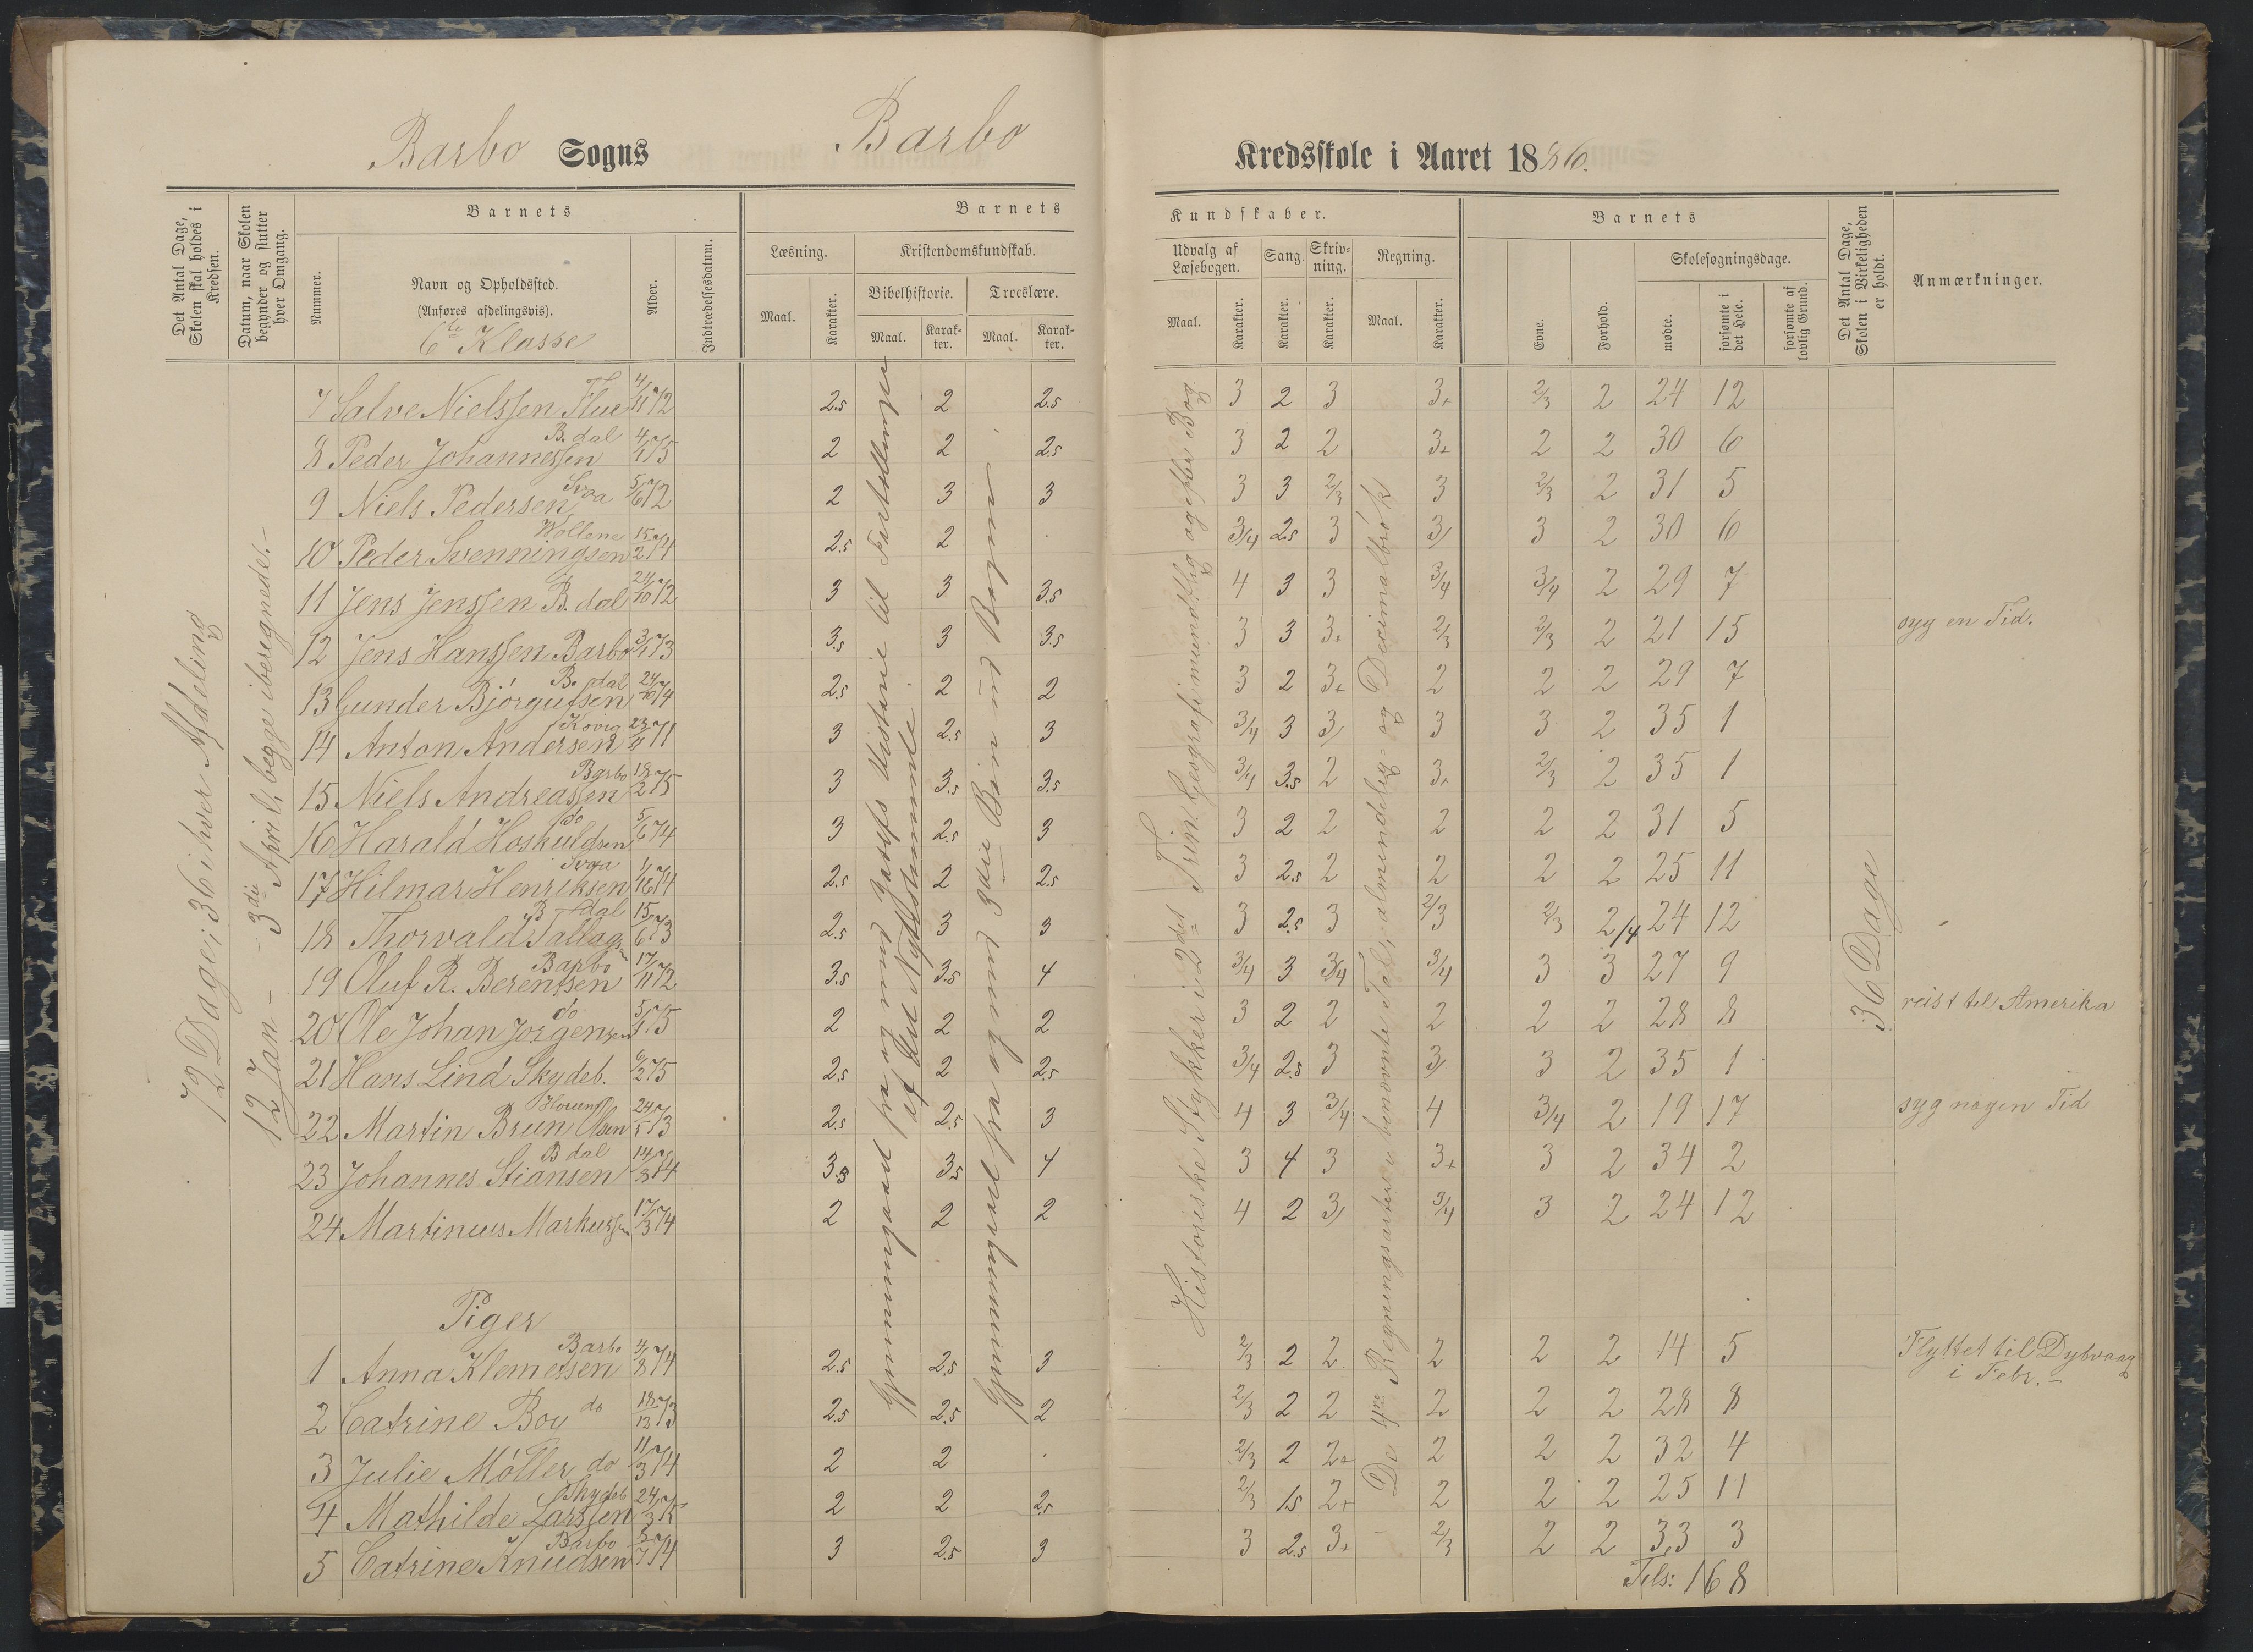 Barbo Sogns Barbo
Kredsskole i Aaret 1886.
Det Antal Dage, Skolen skal holdes i Kredsen.
Datum, naar Skolen begynder og slutter hver Omgang.
Barnets
Nummer.
Navn og Opholdssted.
(Anføres afdelingsvis).
6te Klasse
Alder.
Indtrædelsesdatum.
Barnets
Læsning.
Maal.
Karakter.
Kristendomskundskab.
Bibelhistorie.
Maal.
Karakter.
Troeslære.
Maal.
Karakter.
Kundskaber.
Udvalg af Læsebogen.
Maal.
Karakter.
Sang.
Karakter.
Skrivning.
Karakter.
Regning.
Maal.
Karakter.
Barnets
Evne.
Forhold.
Skolesøgningsdage.
mødte.
forsømte i det Hele.
forsømte af lovlig Grund.
Det Antal Dage, Skolen i Virkeligheden er holdt.
Anmærkninger.
72 Dage, 36 i hver Afdeling
12 Jan - 3die April, begge iberegnedet.-
Gjennemgaaet fra og med Josefs Historie til Fortællinger af det Nytestamentlige
Gjennemgaaet med 3die Bøn ind Bønnen
Historiske Stykker i 2det Trin. Geografi mundtlig og efter Bog.
De 4re Regningsarter i benævnte Tal, almindelig= og Decimalbrøk
36 Dage
7 Salve Nielssen Flue 4/11 72 2.5 2 2.5 3 2 3 3+ 2/3 2 24 12
8 Peder Johannessen B. dal 4/1 75 2 2 2.5 3 2 2 3+ 2 2 30 6
9 Niels Pedersen Svaa 5/6 72 2 3 3 3 3 2/3 3 2/3 2 31 5
10 Peder Svenningsen Wollene 15/2 74 2.5 2 3/4 2.5 3 3/ 3 2 30 6
11 Jens Jenssen B. dal 24/10 72 3 3 3.5 4 3 3 3/4 3/4 2 29 7
12 Jens Hanssen Barbo 3/1 73 3.5 3 3.5 3 3 3+ 2/3 2/3 2 21 15 syg en Tid.
13 Gunder Bjørgufsen B. dal 24/10 74 2.5 2 2 3 2 3+ 2 2 2 29 7
14 Anton Andersen Kovig 23/4 71 3 2.5 3 3/4 3 3/ 3 3 2 35 1
15 Niels Andreassen Barbo 18/2 75 3 3.5 3.5 3/4 3.5 2 3+ 2/3 2 35 1
16 Harald Hoskuldsen do 5/6 74 3 2.5 3 3 2 2 2 2 2 31 5
17 Hilmar Henriksen Svaa 1/16 74 2.5 2 2.5 3 2.5 2 2 2 2 25 11
18 Thorvald Tallags B dal 15/6 73 2.5 3 3 3 2.5 3 2/3 2/3 2/4 24 12
19 Oluf R. Berentsen Barbo 17/11 72 3.5 3.5 4 3/4 3 3/4 3/4 3 3 27 9
20 Ole Johan Jorgensen do 5/1 75 2 2 2 3 2 2 2 2 2 28 8 reist til Amerika
21 Hans Lind Skydeb. 6/2 75 2.5 2 2.5 3/4 2.5 3 3/ 3 2 35 1
22 Martin Brun Olsen 24/5 73 2.5 2.5 3 4 3 3/4 4 3/4 2 19 17 syg nogen Tid
23 Johannes Stiansen B dal 14/3 74 3.5 3.5 4 3 4 3 3+ 3 2 34 2
24 Martinus Markussen 17/3 74 2 2 2 4 2 3/ 3/4 3 2 24 12
Piger
1 Anna Klemetsen Barbo 4/8 74 2.5 2.5 3 2/3 2 2 2 2 2 14 5 Flyttet til Dybvaag i Febr.-
2 Catrine Boy do 18/12 73 2.5 2.5 2 2/3 2 2 2 2 2 28 8
3 Julie Møller do 11/3 74 2 2 2/3 2 2+ 2 2 2 32 4
4 Mathilde Larssen Skydeb 24/3 75 2 2 2.5 2/3 1.5 2+ 2 2 2 25 11
5 Catrine Knudsen Barbo 5/7 74 3 2.5 3 3 2.5 3+ 2/3 2 2 33 3
Tils: 168